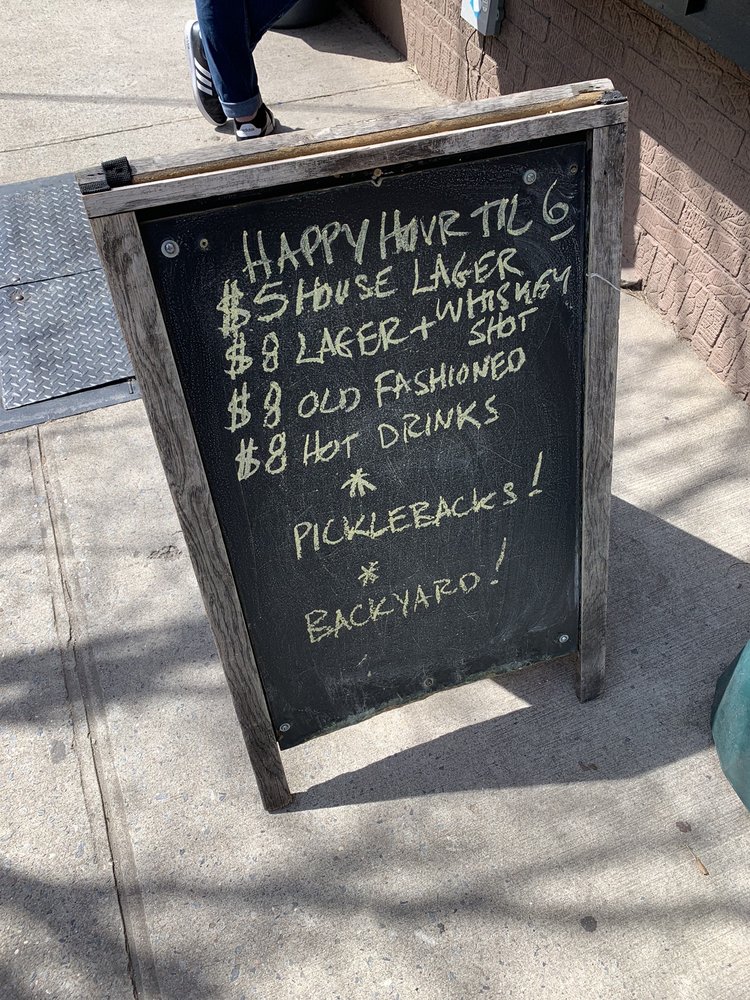 HAPPY HOUR TIL 6
$5 HOUSE LAGER
$8 LAGER + WHISKEY SHOT
$8 OLD FASHIONED
$8 HOT DRINKS
*
PICKLEBACKS!
*
BACKYARD!